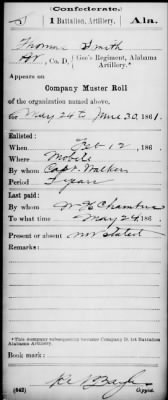 (Confederate.)
S 1 Battalion, Artillery. Ala.
Thomas Smith
Pvt, Co. D, Gee's Regiment, Alabama Artillery.*
Appears on
Company Muster Roll
of the organization named above,
for May 24 to June 30, 1861.
Enlisted:
When Feb 12, 186 .
Where Mobile
By whom Capt. Walker
Period 3 years
Last paid:
By whom Chambers
To what time May 24, 186 .
Present or absent not stated
Remarks:
*This company subsequently became Company D, 1st Battalion Alabama Artillery.
Book mark:
(642) Copyist.